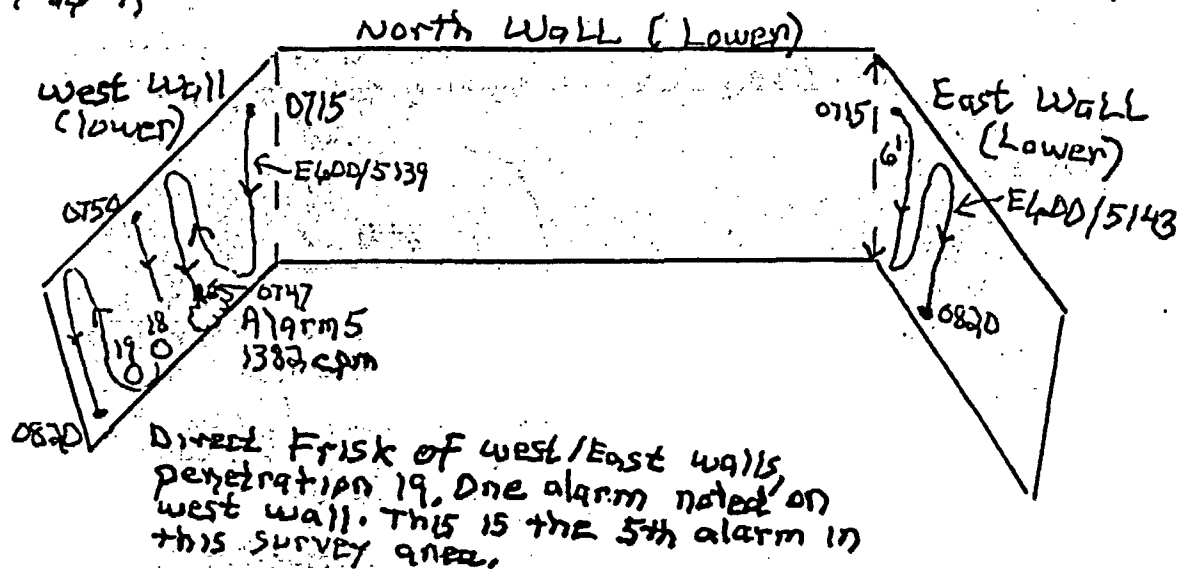 North Wall (Lower)
West Wall
(lower)
0715
E600/5139
0750
A5
0747
Alarm 5
1382 cpm
18
19
0820
0715
6'
East Wall
(Lower)
E600/5143
0820
Direct Frisk of west/East walls,
penetration 19. One alarm noted on
west wall. This is the 5th alarm in
this survey area.